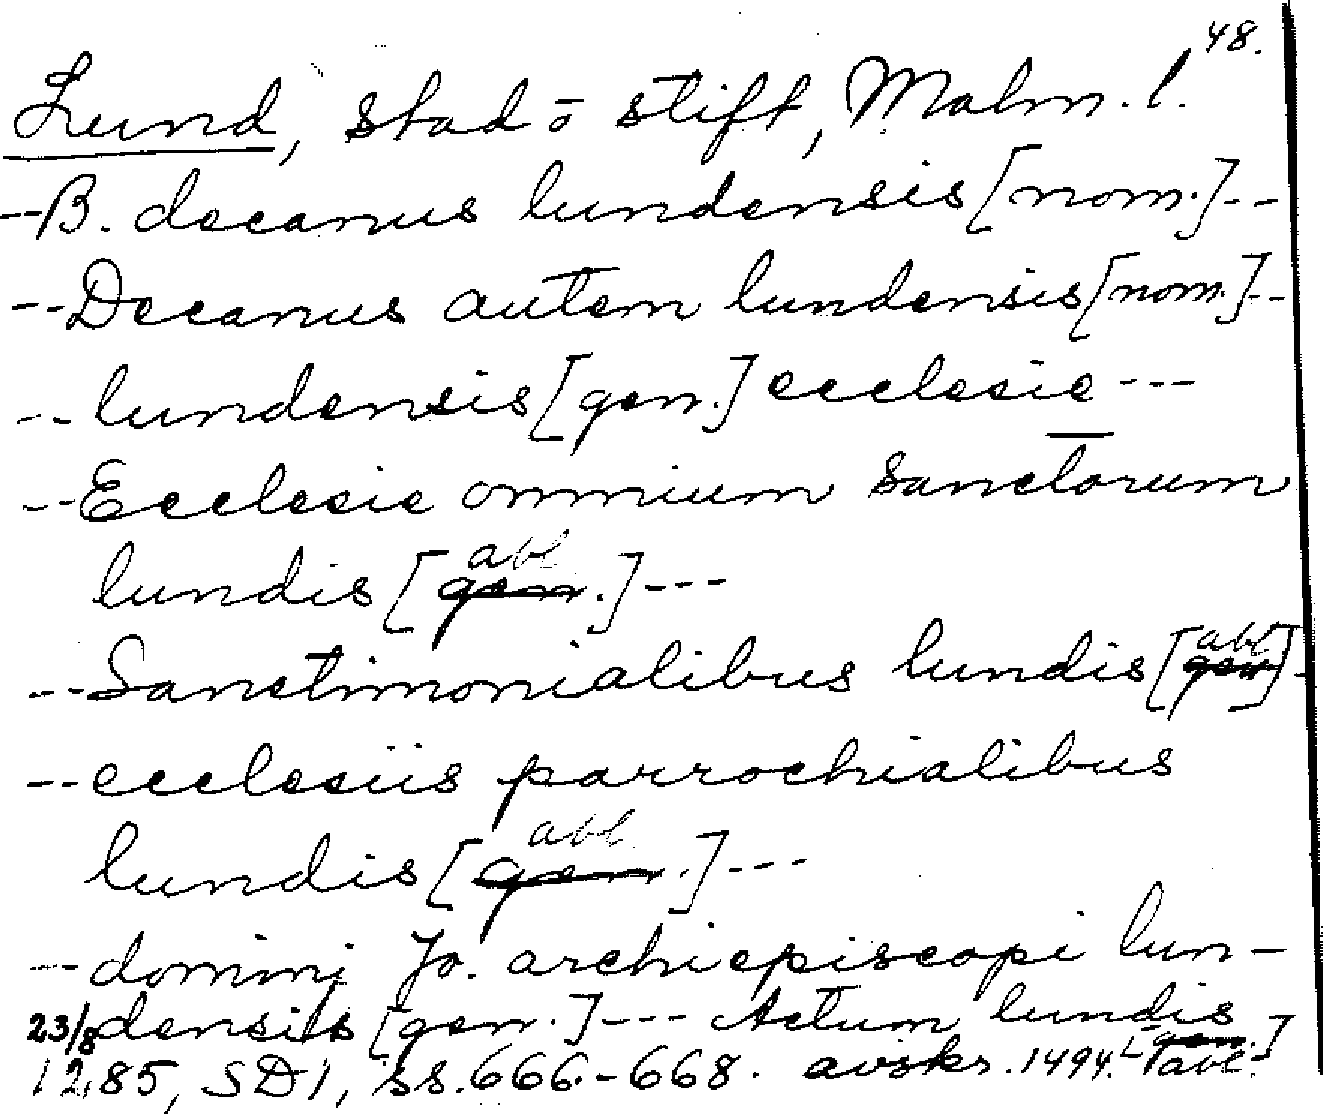 48.
Lund, stad o stift, Malm. l.
--B. decanus lundensis [nom.]--
--Decanus autem lundensis [nom.]--
--lundensis [gen.] ecclesie---
--Ecclesie omnium Sanctorum
lundis [gen. abl]---
--Sanctimonialibus lundis [gen abl]-
--ecclesiis parrochialibus
lundis [gen. abl.]---
--domini Jo. archiepiscopi lun-
densis [gen.]--- Actum lundis
23/8 1285, SD1, ss. 666-668. avskr. 1494. [gen. abl.]